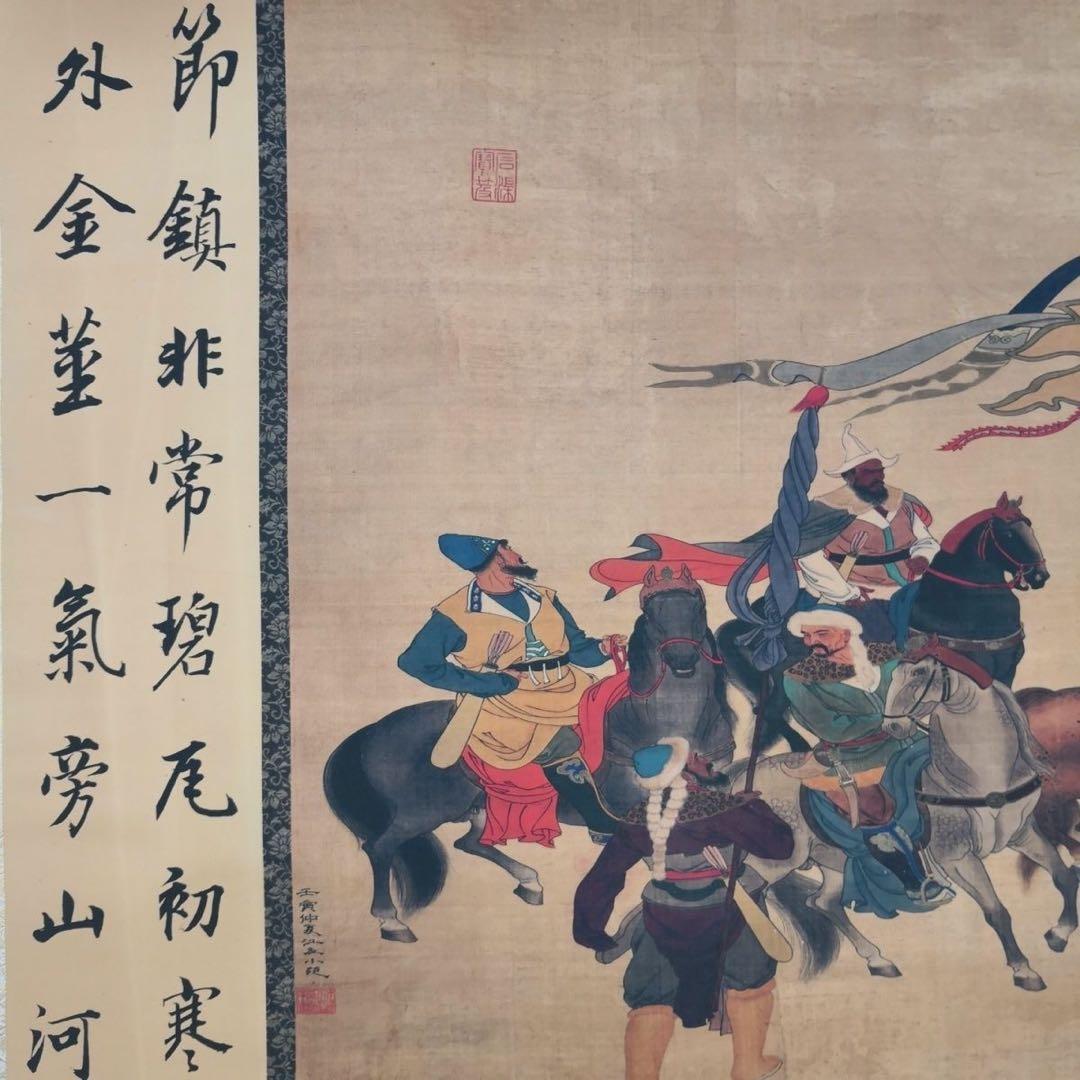 節鎮非常碧瓦初寒
外金莖一氣旁山河
壬寅仲夏